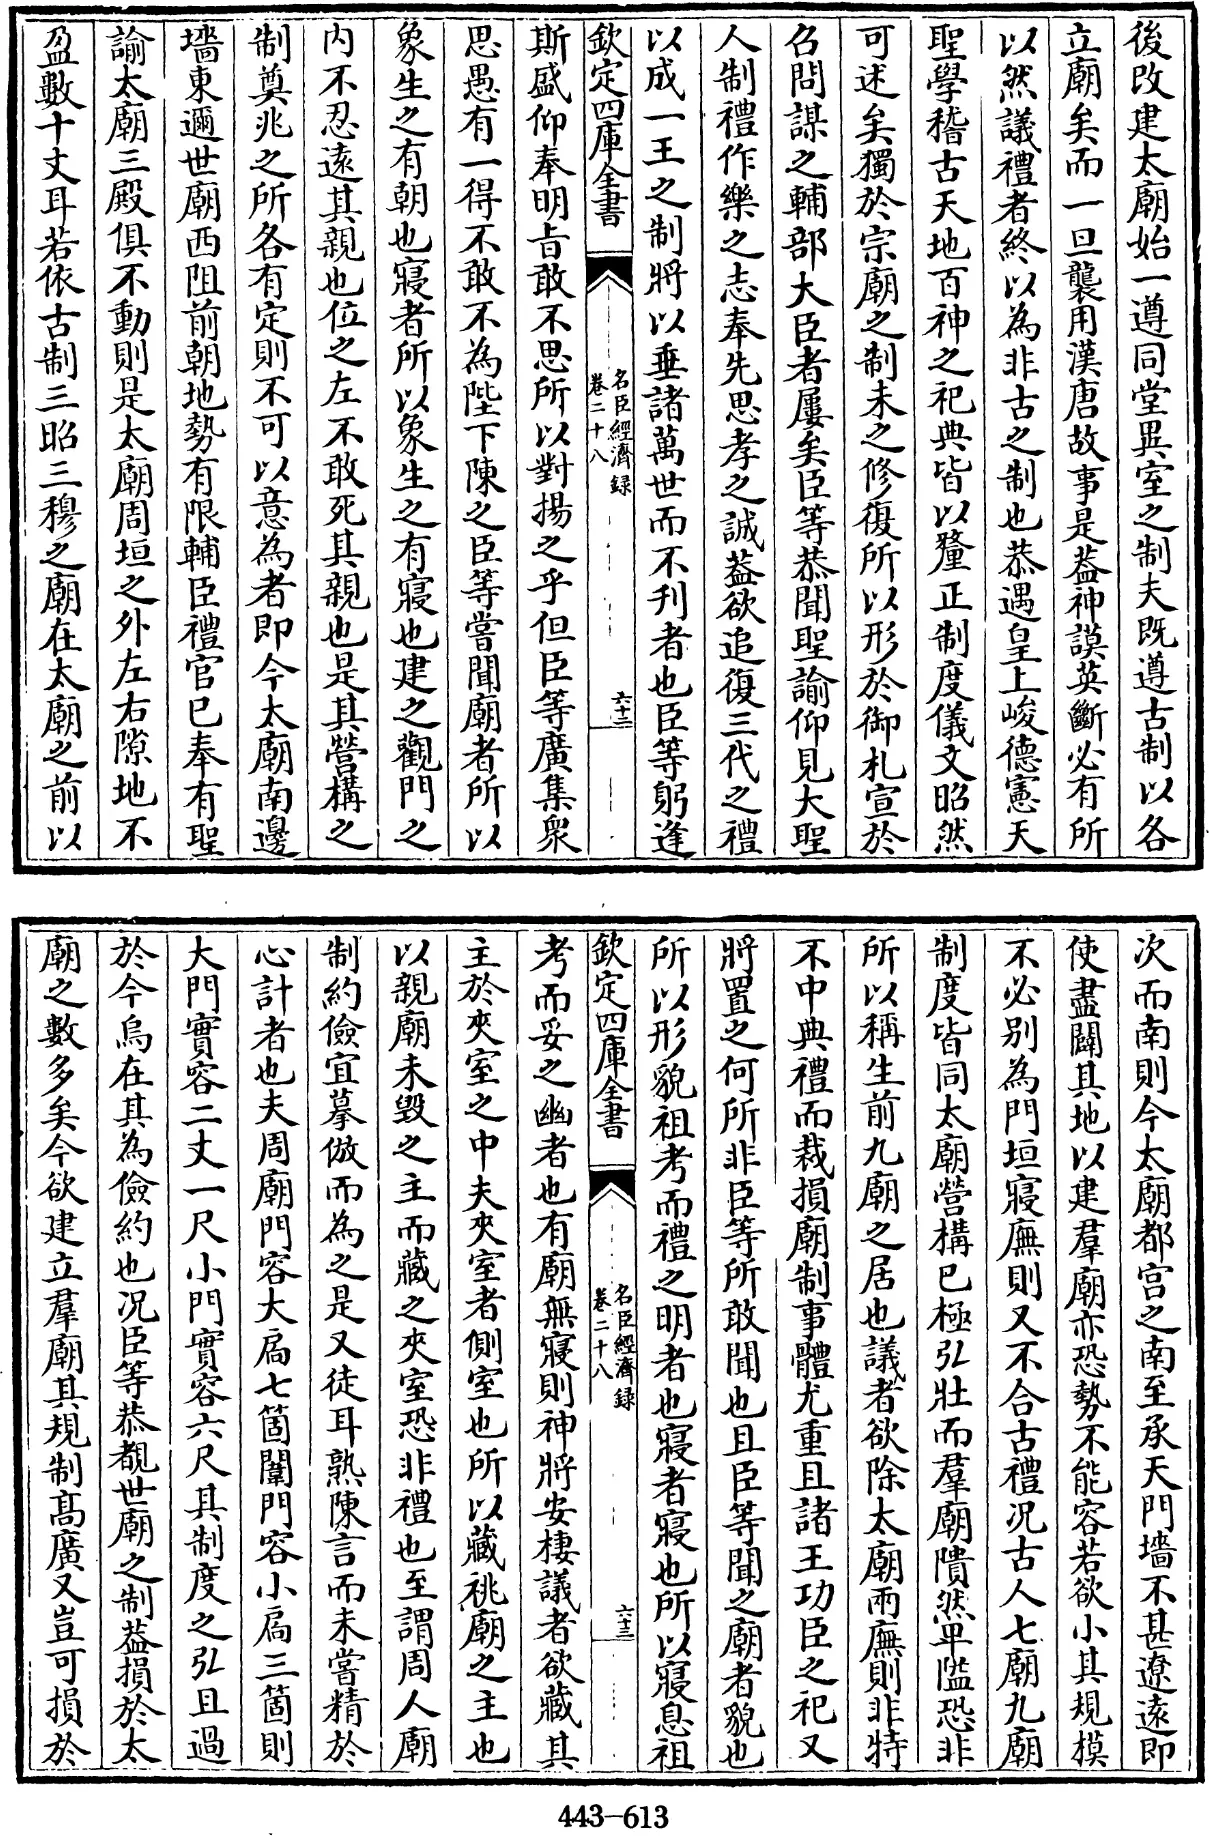 後改建太廟始一遵同堂異室之制夫既遵古制以各
立廟矣而一旦襲用漢唐故事是葢神謨英斷必有所
以然議禮者終以為非古之制也恭遇皇上峻德憲天
聖學稽古天地百神之祀典皆以釐正制度儀文昭然
可述矣獨於宗廟之制未之修復所以形於御札宣於
召問謀之輔部大臣者屢矣臣等恭聞聖諭仰見大聖
人制禮作樂之志奉先思孝之誠葢欲追復三代之禮
以成一王之制將以垂諸萬世而不刋者也臣等躬逢
欽定四庫全書
名臣經濟録
卷二十八
六十二
斯盛仰奉明旨敢不思所以對揚之乎但臣等廣集衆
思愚有一得不敢不為陛下陳之臣等嘗聞廟者所以
象生之有朝也寢者所以象生之有寢也建之觀門之
内不忍遠其親也位之左不敢死其親也是其營構之
制奠兆之所各有定則不可以意為者即今太廟南邊
墻東邇世廟西阻前朝地勢有限輔臣禮官已奉有聖
諭太廟三殿俱不動則是太廟周垣之外左右隙地不
盈數十丈耳若依古制三昭三穆之廟在太廟之前以
次而南則今太廟都宫之南至承天門墻不甚遼遠即
使盡闢其地以建羣廟亦恐勢不能容若欲小其規模
不必别為門垣寢廡則又不合古禮况古人七廟九廟
制度皆同太廟營構已極弘壯而羣廟隤然卑隘恐非
所以稱生前九廟之居也議者欲除太廟兩廡則非特
不中典禮而裁損廟制事體尤重且諸王功臣之祀又
將置之何所非臣等所敢聞也且臣等聞之廟者貌也
所以形貌祖考而禮之明者也寢者寢也所以寢息祖
欽定四庫全書
名臣經濟録
卷二十八
六十三
考而妥之幽者也有廟無寢則神將安棲議者欲藏其
主於夾室之中夫夾室者側室也所以藏祧廟之主也
以親廟未毁之主而藏之夾室恐非禮也至謂周人廟
制約儉宜摹倣而為之是又徒耳熟陳言而未嘗精於
心計者也夫周廟門容大扃七箇闈門容小扃三箇則
大門實容二丈一尺小門實容六尺其制度之弘且過
於今烏在其為儉約也况臣等恭覩世廟之制葢損於太
廟之數多矣今欲建立羣廟其規制髙廣又豈可損於
443-613